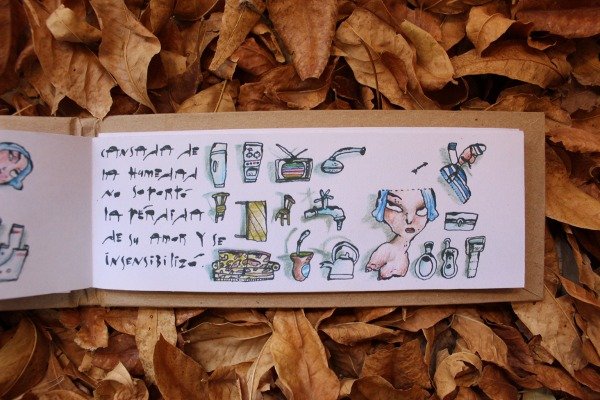 CANSADA DE
LA HUMEDAD
NO SOPORTÓ
LA PÉRDIDA
DE SU AMOR Y SE
INSENSIBILIZÓ